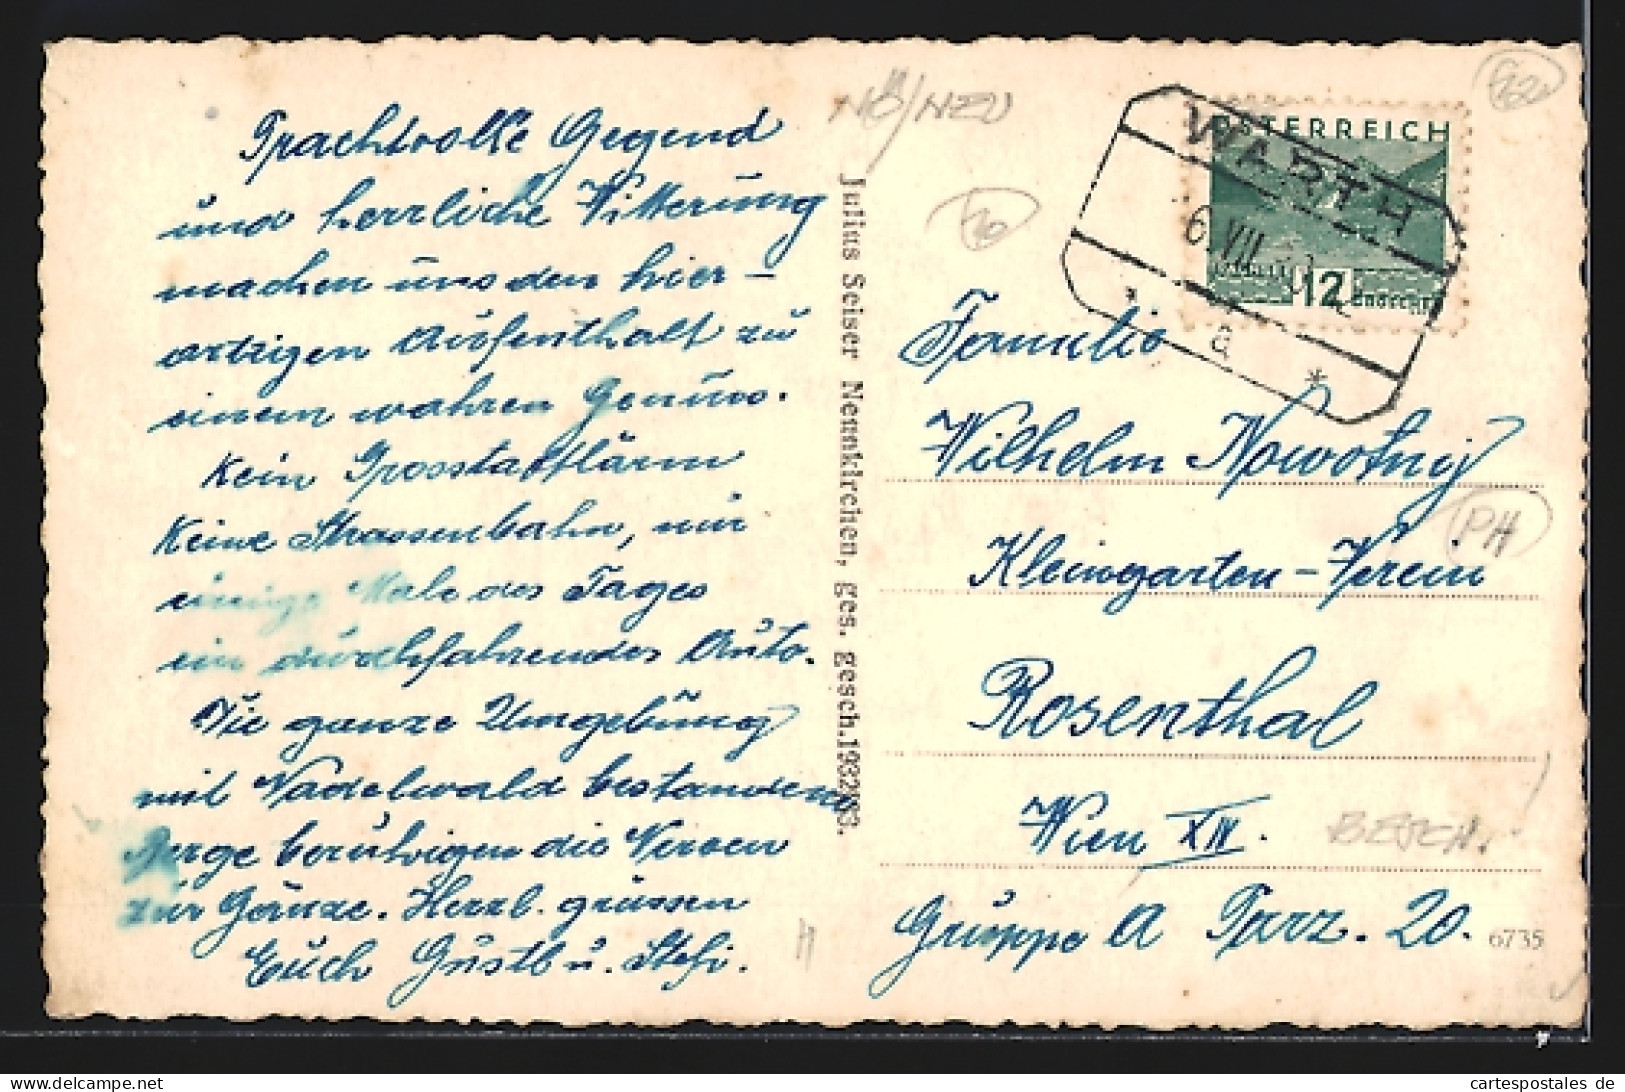 Prachtvolle Gegend
und herrliche Witterung
machen uns den hier-
artigen Aufenthalt zu
einem wahren Genuss.
Kein Grosstadtlärm
Keine Strassenbahn, nur
einige Male des Tages
ein durchfahrendes Auto.
Die ganze Umgebung
mit Nadelwald bestandene
Berge beruhigen die Nerven
zur Gänze. Herzl. grüssen
Euch Gustl u. Stefi.
Julius Seiser Neunkirchen, ges. gesch. 1932/33.
NÖ/NEU
ÖSTERREICH
12
WARTH
6 VII
a
Familie
Wilhelm Nowotny
Kleingarten-Verein
Rosenthal
Wien XIV.
Gruppe A Parz. 20.
PH
BESCH.
H
6735
www.cartespostales.eu
cartespostales.de